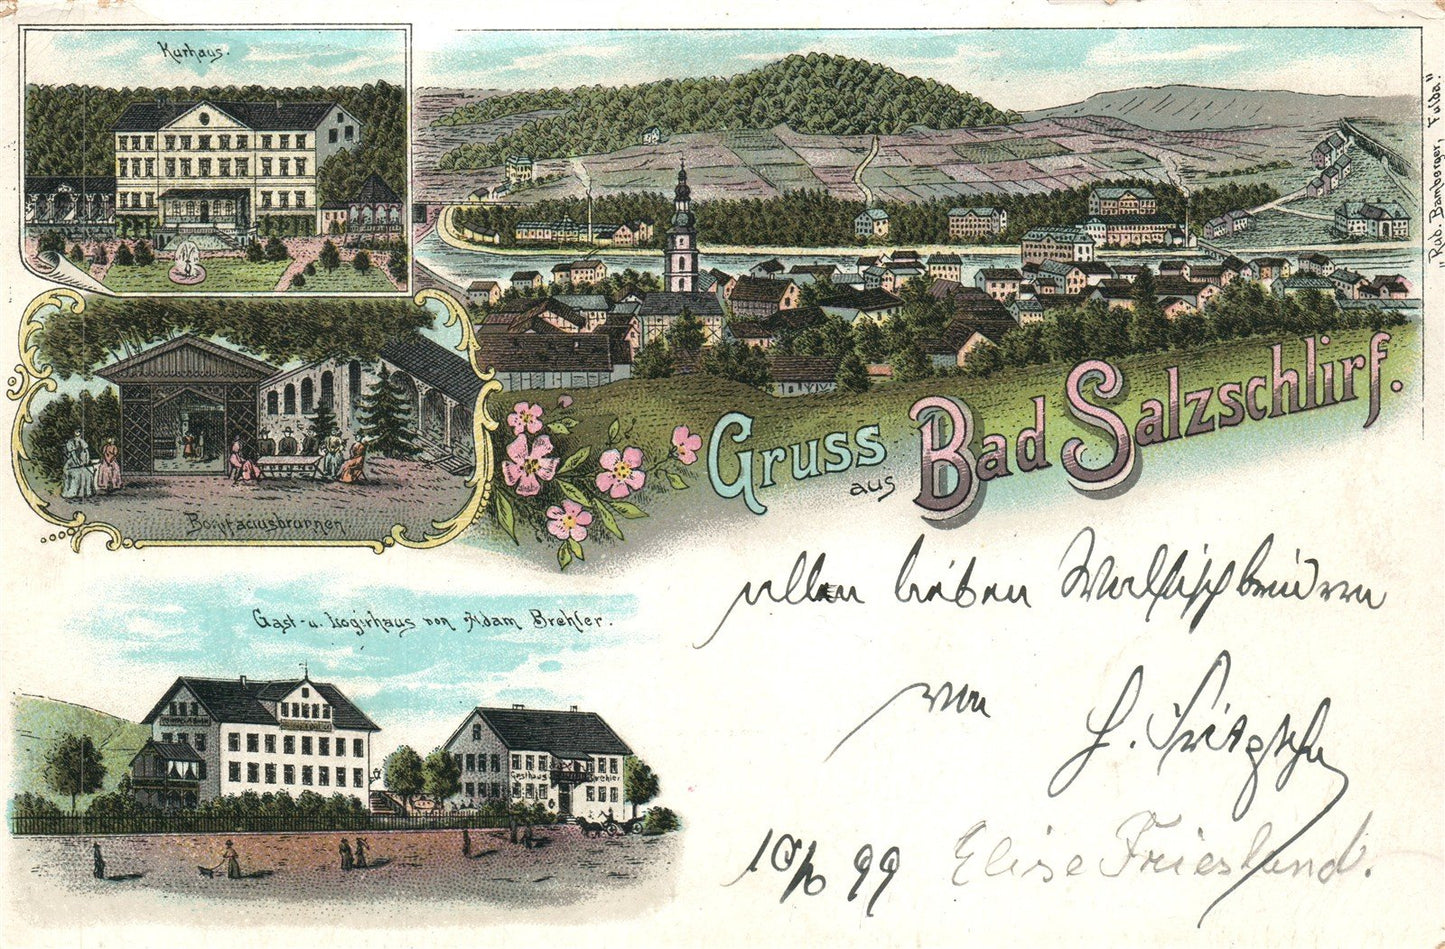 Kurhaus.
"Rub. Bamberger, Fulda."
Gruss
aus
Bad Salzschlirf.
Bonifaciusbrunnen
Gast- u. Logirhaus von Adam Brehler.
Gasthaus Brehler
allen lieben
von
10/6 99
Elise Friesland.